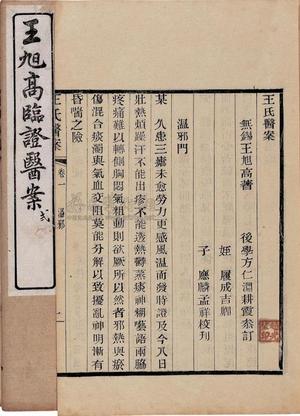 王旭高臨證醫案
弎
王氏醫案
無錫王旭高著
後學方仁淵耕霞叅訂
姪 履成吉甫
子 應麟孟祥校刊
溫邪門
某 久患三瘧未愈勞力更感風溫而發時證及今八日
壯熱煩躁汗不能出疹不能透熱鬱蒸痰神糊囈語兩脇
疼痛難以轉側胸悶氣粗動則欲厥所以然者邪熱與瘀
傷混合痰濁與氣血交阻莫能分解以致擾亂神明漸有
昏喘之險
王氏醫案 卷一 溫邪 一